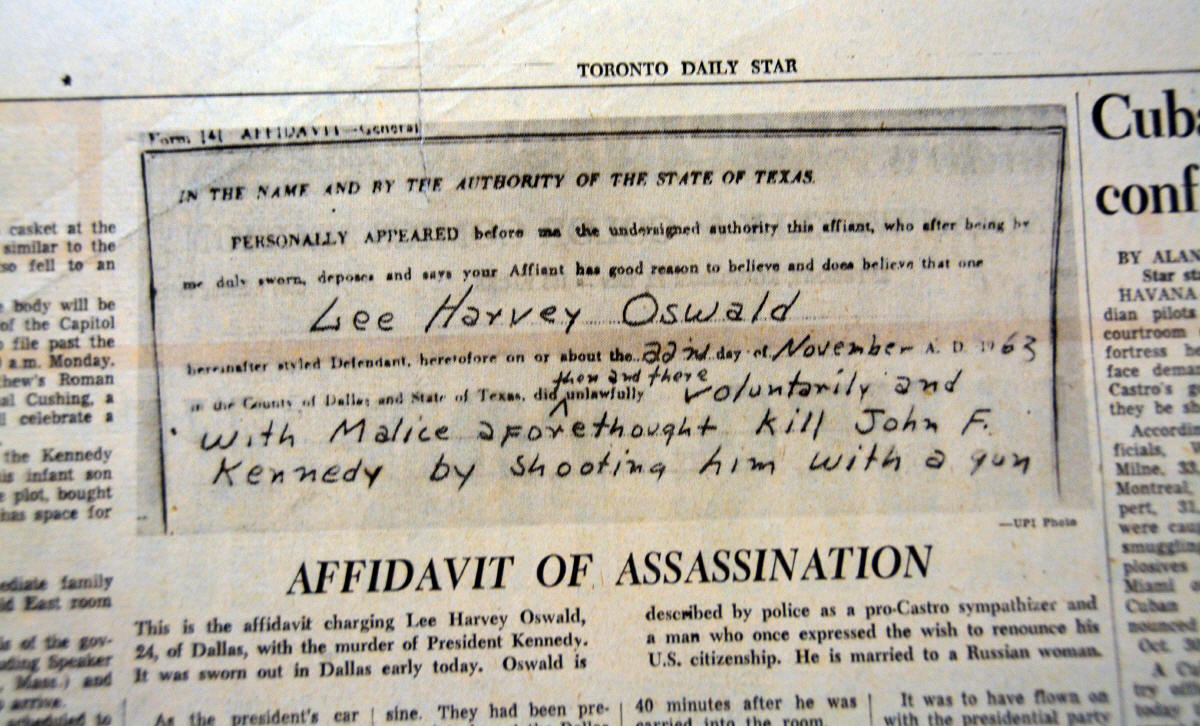 TORONTO DAILY STAR
casket at the
similar to the
so fell to an
body will be
of the Capitol
file past the
a.m. Monday.
hew's Roman
al Cushing, a
celebrate a
the Kennedy
is infant son
plot, bought
has space for
ediate family
East room
of the gov-
uding Speaker
Mass.) and
arrive.
scheduled to
Form 141 AFFIDAVIT—General
IN THE NAME AND BY THE AUTHORITY OF THE STATE OF TEXAS.
PERSONALLY APPEARED before me the undersigned authority this affiant, who after being by
me duly sworn, deposes and says your Affiant has good reason to believe and does believe that one
Lee Harvey Oswald
hereinafter styled Defendant, heretofore on or about the 22nd day of November A. D. 1963
then and there
in the County of Dallas and State of Texas, did unlawfully voluntarily and
with Malice aforethought kill John F.
Kennedy by shooting him with a gun
—UPI Photo
AFFIDAVIT OF ASSASSINATION
This is the affidavit charging Lee Harvey Oswald,
24, of Dallas, with the murder of President Kennedy.
It was sworn out in Dallas early today. Oswald is
described by police as a pro-Castro sympathizer and
a man who once expressed the wish to renounce his
U.S. citizenship. He is married to a Russian woman.
As the president's car
sine. They had been pre-
40 minutes after he was
carried into the room.
It was to have flown on
with the presidential party
Cuba
conf
BY ALAN
Star st
HAVANA
dian pilots
courtroom
fortress he
face deman
Castro's g
they be sh
Accordin
ficials,
Milne, 33
Montreal,
pert, 31
were cau
smugglin
plosives
Miami
Cuban
nounced
Oct. 30
A Cu
try offi
today